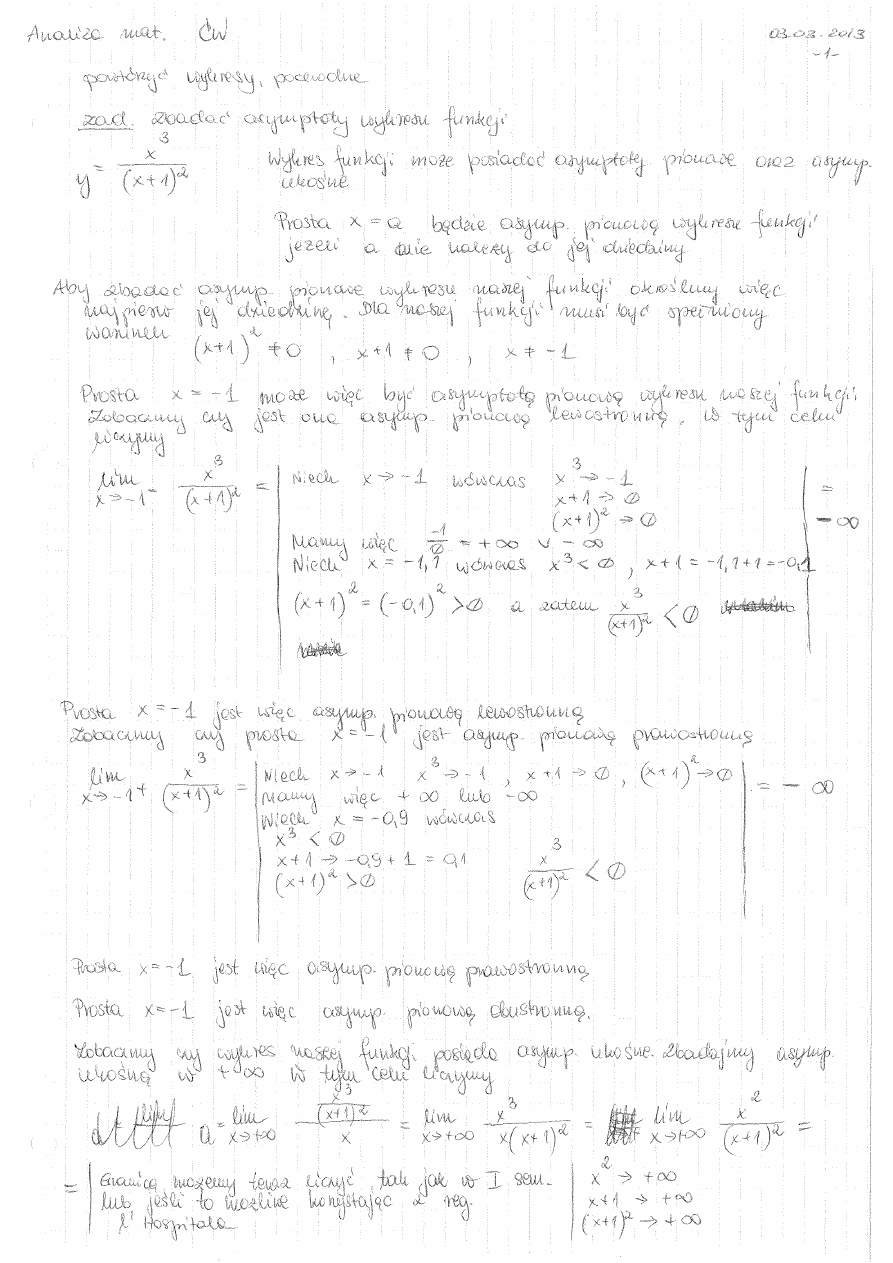 Analiza mat. ĆW 03.03.2013
-1-
powtórzyć wykresy, pochodne
zad. Zbadać asymptoty wykresu funkcji
y = x³/(x+1)² Wykres funkcji może posiadać asymptoty pionowe oraz asymp.
ukośne
Prosta x = a będzie asymp. pionową wykresu funkcji
jeżeli a nie należy do jej dziedziny
Aby zbadać asymp. pionowe wykresu naszej funkcji określmy więc
najpierw jej dziedzinę. Dla naszej funkcji musi być spełniony
warunek
(x+1)² ≠ 0 , x+1 ≠ 0 , x ≠ -1
Prosta x = -1 może więc być asymptotą pionową wykresu naszej funkcji
Zobaczmy czy jest ona asymp. pionową lewostronną. W tym celu
liczymy
lim x→-1⁻ x³/(x+1)² = | Niech x → -1 wówczas x³ → -1 | =
x+1 → 0
(x+1)² → 0 - ∞
Mamy więc -1/0 = +∞ v -∞
Niech x = -1,1 wówczas x³ < 0 , x+1 = -1,1+1 = -0,1
(x+1)² = (-0,1)² > 0 a zatem x³/(x+1)² < 0
Prosta x = -1 jest więc asymp. pionową lewostronną
Zobaczmy czy prosta x = -1 jest asymp. pionową prawostronną
lim x→-1⁺ x³/(x+1)² = | Niech x → -1 x³ → -1 , x+1 → 0 , (x+1)² → 0 | = - ∞
Mamy więc +∞ lub -∞
Niech x = -0,9 wówczas
x³ < 0
x+1 → -0,9+1 = 0,1
(x+1)² > 0 x³/(x+1)² < 0
Prosta x = -1 jest więc asymp. pionową prawostronną
Prosta x = -1 jest więc asymp. pionową obustronną.
Zobaczmy czy wykres naszej funkcji posiada asymp. ukośne. Zbadajmy asymp.
ukośną w +∞ W tym celu liczymy
a = lim x→+∞ (x³/(x+1)²)/x = lim x→+∞ x³/(x(x+1)²) = lim x→+∞ x²/(x+1)² =
= | Granicę możemy teraz liczyć tak jak w I sem. | x² → +∞
lub jeśli to możliwe korzystając z reg. x+1 → +∞
l'Hospitala (x+1)² → +∞